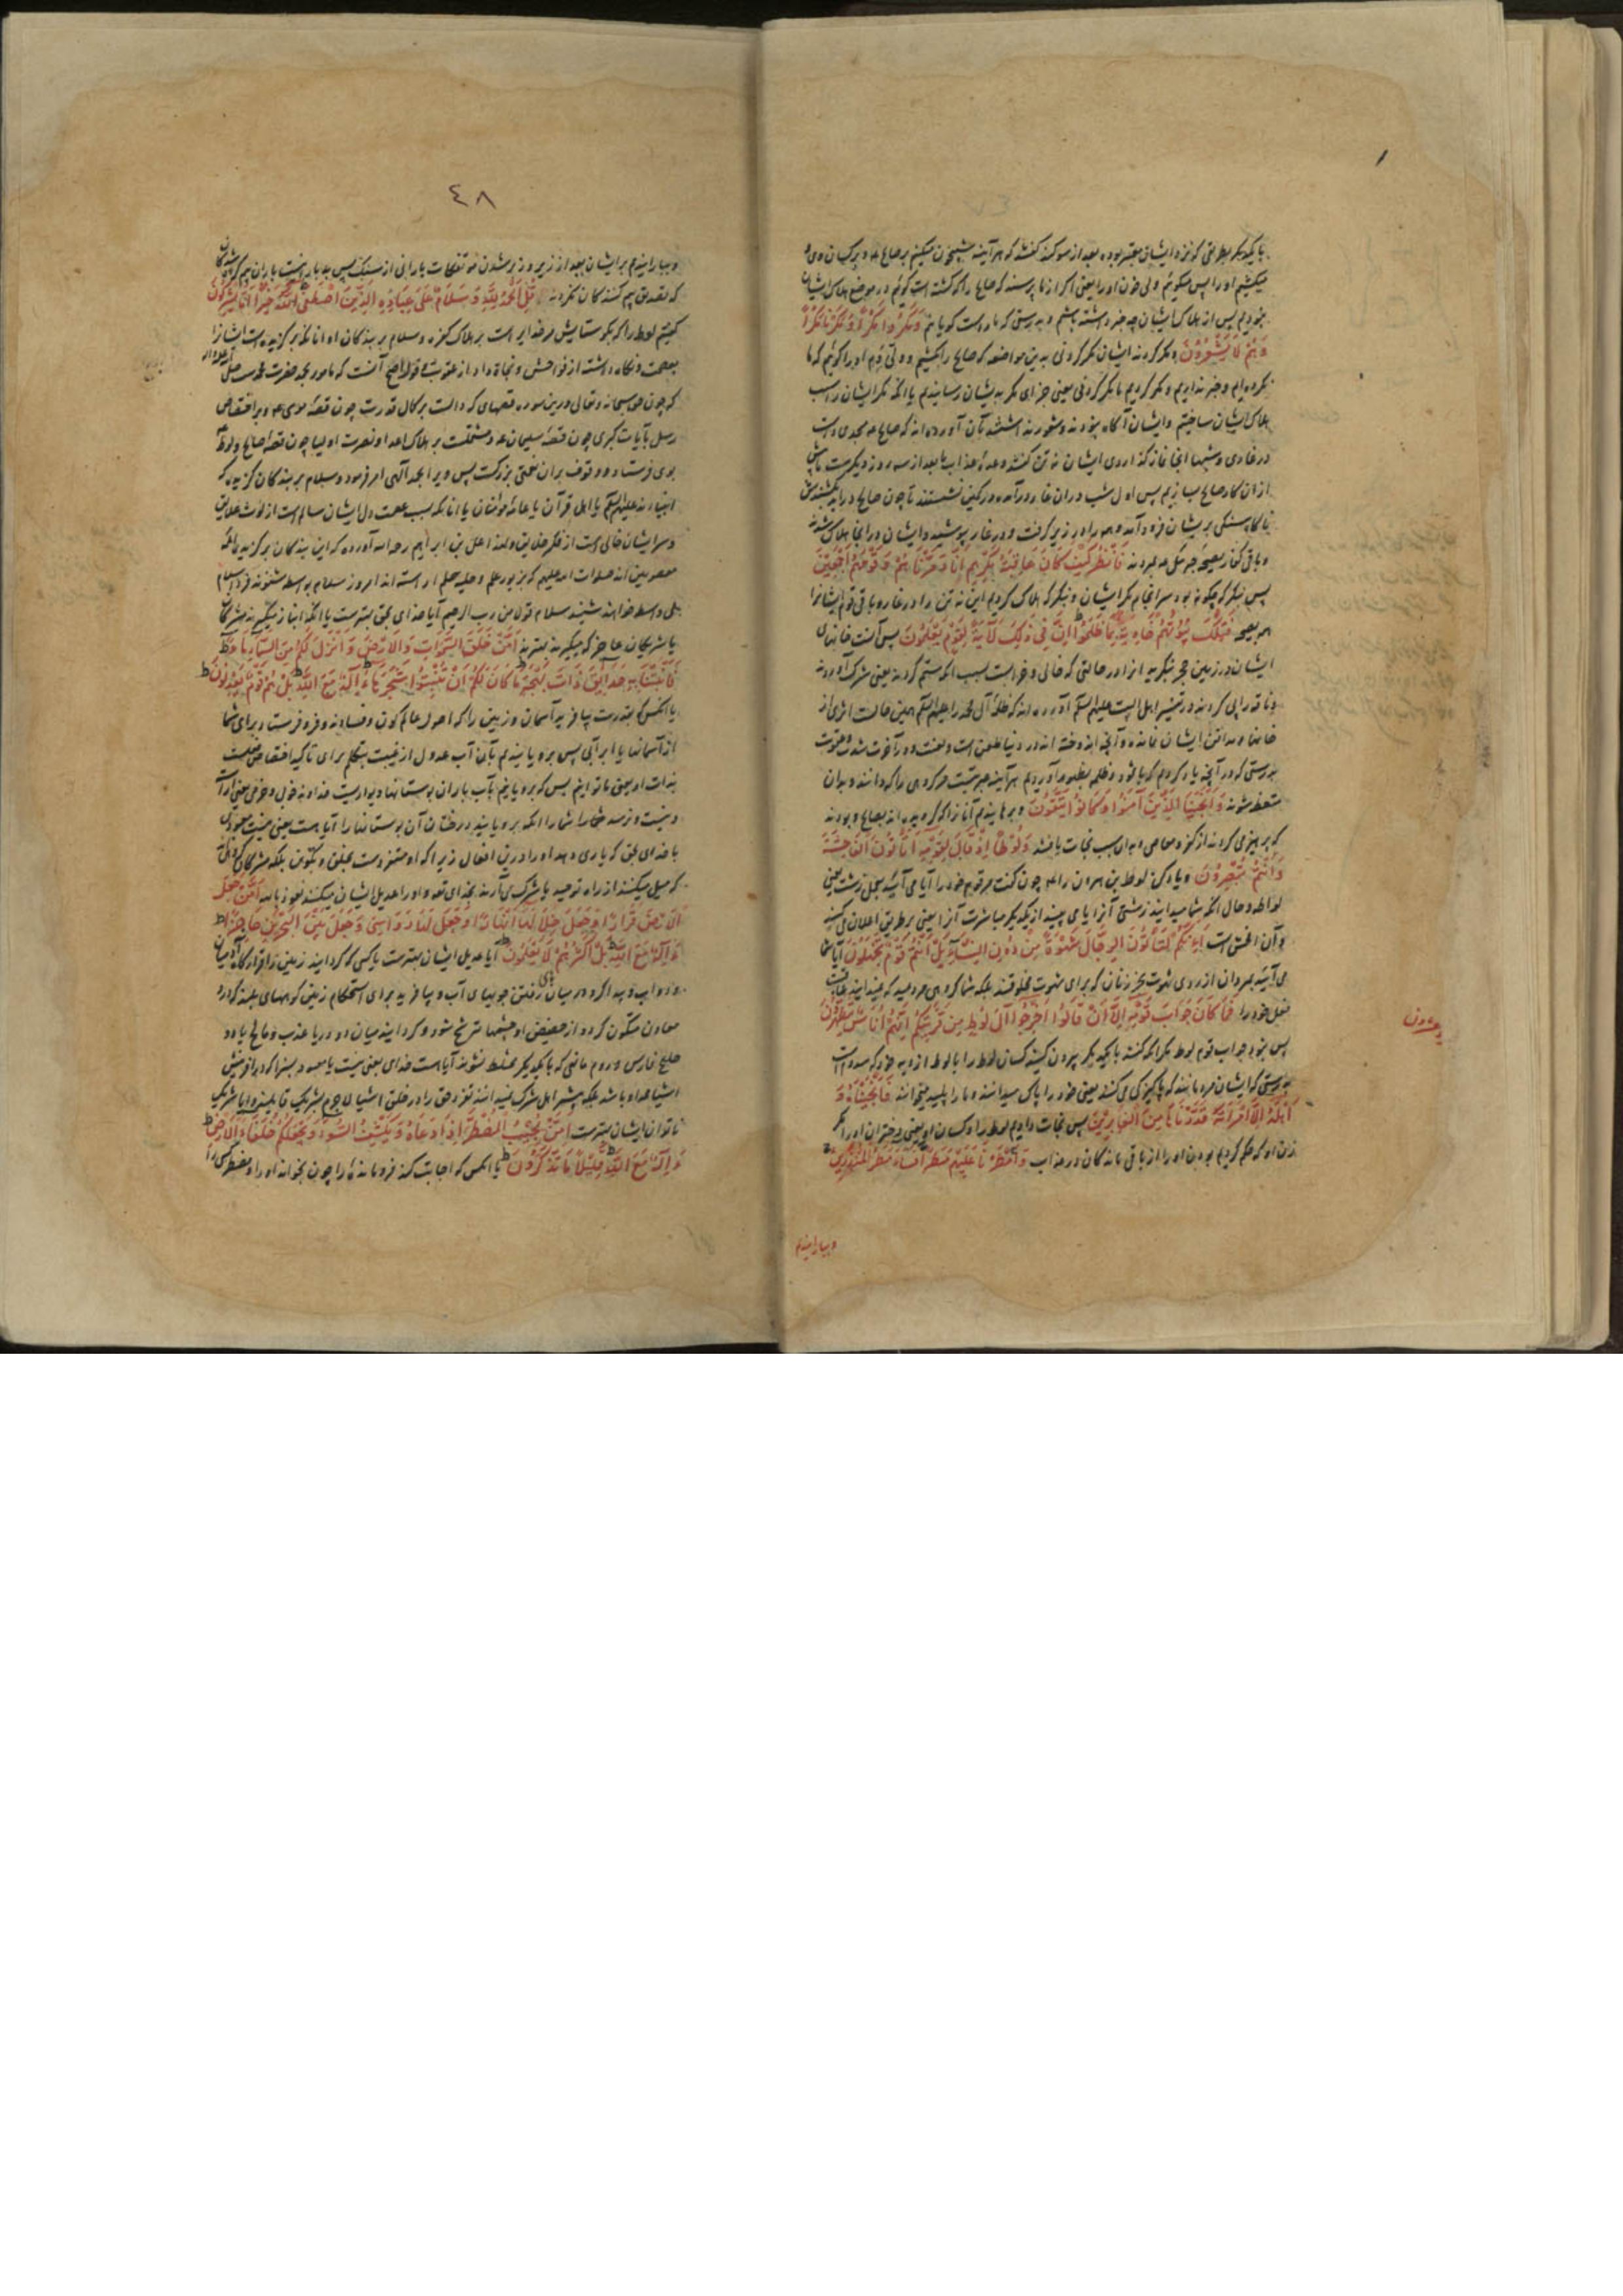 با یکدیگر بطریقی که نزد ایشان معتبر بوده بعد از سوکند کفتند که هر آینه شبیخون میکنیم بر صالح و بر کسان وی
میکشیم او را پس میکوئیم ولی خون او را یعنی اگر از ما پرسند که صالح را که کشته است کوئیم در موضع هلاک ایشان
نبودیم پس از هلاک ایشان چه خبر داشته باشیم و بدرستی که ما راست کویانیم وَمَكَرُوا مَكْرًا وَمَكَرْنَا مَكْرًا
وَهُمْ لَا يَشْعُرُونَ و مکر کردند ایشان مکر کردنی بدین مواضعه که صالح را بکشیم و ولی دم او را کوئیم که ما
نکرده‌ایم و خبر نداریم و مکر کردیم ما مکر کردنی یعنی جزای مکر بدیشان رسانیدیم یا آنکه مکر ایشان را سبب
هلاک ایشان ساختیم و ایشان آگاه نبودند و شعور نداشتند آورده‌اند که صالح مسجدی داشت
در غاری و شبها آنجا نماز گذاردی ایشان نه تن گفتند وعده عذاب ما بعد از سه روز دیگرست
از آن کار صالح بسازیم پس اول شب در آن غار در آمده در کمین نشستند تا چون صالح در آید بکشندش
ناکاه سنگی بر ایشان فرود آمد و همه را در زیر گرفت و در غار پوشیده و ایشان در آنجا هلاک شدند
و باقی کفار بصیحه جبرئیل بمردند فَانْظُرْ كَيْفَ كَانَ عَاقِبَةُ مَكْرِهِمْ أَنَّا دَمَّرْنَاهُمْ وَقَوْمَهُمْ أَجْمَعِينَ
پس بنگر که چکونه بود سرانجام مکر ایشان و بنگر که هلاک کردیم این نه تن را در غار و باقی قوم ایشانرا
بصیحه فَتِلْكَ بُيُوتُهُمْ خَاوِيَةً بِمَا ظَلَمُوا إِنَّ فِي ذَلِكَ لَآيَةً لِقَوْمٍ يَعْلَمُونَ پس آنست خانهای
ایشان در زمین حجر بنکرید آنرا در حالتی که خالی و خرابست بسبب آنکه ستم کردند یعنی شرک آوردند
و ناقه را پی کردند در تفسیر اهل البیت علیهم السلم آورده‌اند که ظلمه آل محمد را علیهم السلم همین حالت اثری از
خانها و مساکن ایشان نمانده و آنچه اندوخته‌اند در دنیا طعن است و لعنت و در آخرت شدت و عقوبت
بدرستی که در آنچه یاد کردیم که باثمود و ظلم بظهور آوردیم هر آینه عبرتیست مر گروهی را که دانند و بدان
متعظ شوند وَأَنْجَيْنَا الَّذِينَ آمَنُوا وَكَانُوا يَتَّقُونَ و برهانیدیم آنانرا که گرویده‌اند بصالح و بودند
که پرهیز می‌کردند از کفر و معاصی و بدان سبب نجات یافتند وَلُوطًا إِذْ قَالَ لِقَوْمِهِ أَتَأْتُونَ الْفَاحِشَةَ
وَأَنْتُمْ تُبْصِرُونَ و یاد کن لوط بن هرون را که چون گفت مر قوم خود را آیا می‌آئید بعمل زشت یعنی
لواطه و حال آنکه شما میدانید زشتی آنرا یا می‌بینید از یکدیگر مباشرت آنرا یعنی بر طریق اعلان می‌کنید
و آن افحش است أَئِنَّكُمْ لَتَأْتُونَ الرِّجَالَ شَهْوَةً مِنْ دُونِ النِّسَاءِ بَلْ أَنْتُمْ قَوْمٌ تَجْهَلُونَ آیا شما
می‌آئید بمردان از روی شهوت بجز زنان که برای شهوت مخلوقند بلکه شما گروهی مردمید که نمیدانید عاقبت
فعل خود را فَمَا كَانَ جَوَابَ قَوْمِهِ إِلَّا أَنْ قَالُوا أَخْرِجُوا آلَ لُوطٍ مِنْ قَرْيَتِكُمْ إِنَّهُمْ أُنَاسٌ يَتَطَهَّرُونَ
پس نبود جواب قوم لوط مگر آنکه گفتند با یکدیگر بیرون کنید کسان لوط را با لوط از دیه خود که سدوم است
بدرستی که ایشان مردمانند که پاکیزگی می‌کنند یعنی خود را پاک میدانند و ما را پلید میخوانند فَأَنْجَيْنَاهُ وَ
أَهْلَهُ إِلَّا امْرَأَتَهُ قَدَّرْنَاهَا مِنَ الْغَابِرِينَ پس نجات دادیم لوط را و کسان او یعنی دختران او را مگر
زن او که حکم کردیم بودن او را از باقی ماندکان در عذاب وَأَمْطَرْنَا عَلَيْهِمْ مَطَرًا فَسَاءَ مَطَرُ الْمُنْذَرِينَ
و ببارانیدیم
٤٨
و ببارانیدیم بر ایشان بعد از زیر و زبر شدن موتفکات بارانی از سنک پس بد بارانیست باران بیم کرده شدکان
که تصدیق بیم کنندکان نکردند قُلِ الْحَمْدُ لِلَّهِ وَسَلَامٌ عَلَى عِبَادِهِ الَّذِينَ اصْطَفَى آللَّهُ خَيْرٌ أَمَّا يُشْرِكُونَ
گفتیم لوط را که بکو ستایش مر خدایراست بر هلاک کفره و سلام بر بندکان او آنانکه برگزیده است ایشانرا
بعصمت و نگاه داشته از فواحش و نجاة داد از عقوبت و قول اصح آنست که مامور بحمد حضرت محمدست صلی
الله علیه و اله
که چون حق سبحانه و تعالی درین سوره قصهای که دالست بر کمال قدرت چون قصه موسی و بر اختصاص
رسل بآیات کبری چون قصه سلیمان و مشتملست بر هلاک اعدا و نصرت اولیا چون قصه صالح و لوط
بوی فرستاد و وقوف بران نعمتی بزرکست پس ویرا بحمد الهی امر فرمود و سلام بر بندکان گزیده که
انبیااند علیهم السلم یا اهل قرآن یا عامه مؤمنان یا آنانکه بسبب عصمت دل ایشان سالم است از لوث علایق
و سر ایشان خالی است از فکر خلایق و لهذا علی بن ابراهیم رحمه الله آورده که این بندکان برگزیده ائمه
معصومین‌اند صلوات الله علیهم که بزیور علم و حلیه حلم آراسته‌اند امروز سلام بواسطه شنوند فردا سلام
بی واسطه خواهند شنید سلام قول من رب الرحیم آیا خدای بحق بهترست یا آنکه انباز میگیرند مشرکان
یا شریکان عاجز که میگیرند بهترند أَمَّنْ خَلَقَ السَّمَوَاتِ وَالْأَرْضَ وَأَنْزَلَ لَكُمْ مِنَ السَّمَاءِ مَاءً
فَأَنْبَتْنَا بِهِ حَدَائِقَ ذَاتَ بَهْجَةٍ مَا كَانَ لَكُمْ أَنْ تُنْبِتُوا شَجَرَهَا ءَإِلَهٌ مَعَ اللَّهِ بَلْ هُمْ قَوْمٌ يَعْدِلُونَ
یا آنکس که بقدرت بیافرید آسمان و زمین را که اصول عالم کون و فسادند و فرو فرستاد برای شما
از آسمان یا ابر آبی پس برویانیدیم بآن آب عدول از غیبت بتکلم برای تاکید اختصاص فعلست
بذات او یعنی ما توانیم پس که برویانیم بآب باران بوستانها دیواربست خداوند خوبی و خرمی یعنی آراسته
و نیست و نرسد شما را آنکه برویانید درختان آن بوستانها را آیا هست یعنی نیست معبودی
با خدای بحق که یاری دهد او را درین افعال زیرا که او متفردست بخلق و تکوین بلکه مشرکان گروهی‌اند
که میل میکنند از راه توحید یا شرک می‌آرند بخدای تعالی و او را عدیل ایشان میکنند نعوذ بالله أَمَّنْ جَعَلَ
الْأَرْضَ قَرَارًا وَجَعَلَ خِلَالَهَا أَنْهَارًا وَجَعَلَ لَهَا رَوَاسِيَ وَجَعَلَ بَيْنَ الْبَحْرَيْنِ حَاجِزًا
ءَإِلَهٌ مَعَ اللَّهِ بَلْ أَكْثَرُهُمْ لَا يَعْلَمُونَ آیا عدیل ایشان بهترست یا کسی که گردانید زمین را قرارگاه آدمیان
و دواب و پیدا کرد در میان زمین جویهای آب و بیافرید برای استحکام زمین کوههای بلند که در او
معادن متکون گردد از حضیض او چشمها مترشح شود و گردانید میان دو دریا عذب و مالح یا دو
خلیج فارس و روم مانعی که با یکدیگر مختلط نشوند آیا هست خدای یعنی نیست یا معبود بسزا که در آفرینش
اشیا با خدا باشد بلکه بیشتر اهل شرک نمیدانند تفرد حق را در خلق اشیا لاجرم بشریک قایلیند و ایا شریک
ناتوان ایشان بهترست أَمَّنْ يُجِيبُ الْمُضْطَرَّ إِذَا دَعَاهُ وَيَكْشِفُ السُّوءَ وَيَجْعَلُكُمْ خُلَفَاءَ الْأَرْضِ
ءَإِلَهٌ مَعَ اللَّهِ قَلِيلًا مَا تَذَكَّرُونَ یا آنکس که اجابت کند فرو مانده را چون بخواند او را و مضطر کسی را